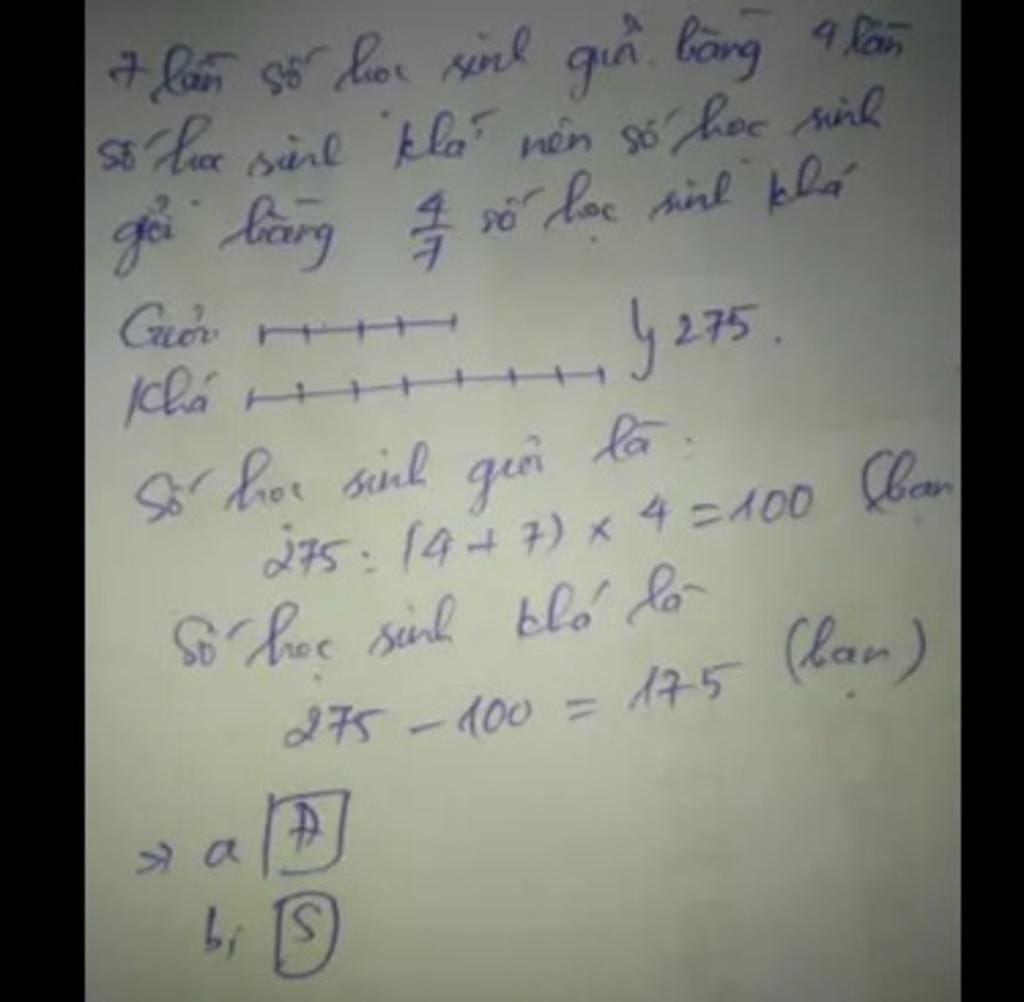 7 lần số học sinh giỏi bằng 4 lần
số học sinh khá nên số học sinh
giỏi bằng 4/7 số học sinh khá
Giỏi 275.
Khá
Số học sinh giỏi là:
275 : (4 + 7) × 4 = 100 (bạn
Số học sinh khá là
275 - 100 = 175 (bạn)
=> a Đ
b, S